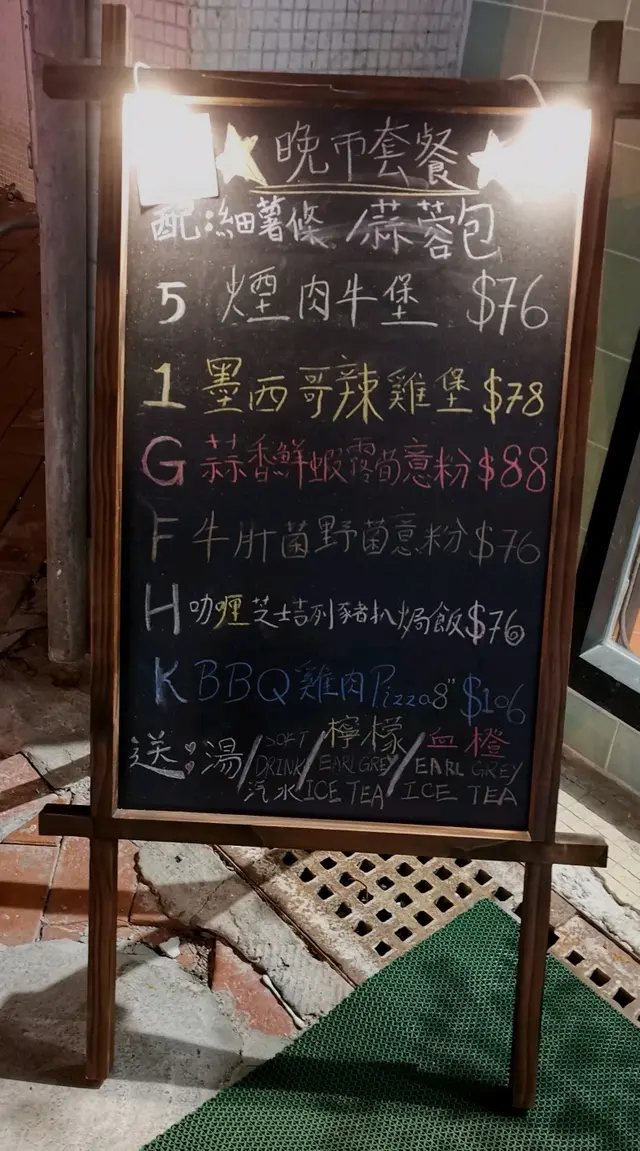 晚市套餐
配:細薯條/蒜蓉包
5 煙肉牛堡 $76
1 墨西哥辣雞堡 $78
G 蒜香鮮蝦露荀意粉 $88
F 牛肝菌野菌意粉 $76
H 咖喱芝士吉列豬扒焗飯 $76
K BBQ雞肉Pizza8" $106
送:湯/SOFT DRINK 汽水/檸檬 EARL GREY ICE TEA/血橙 EARL GREY ICE TEA